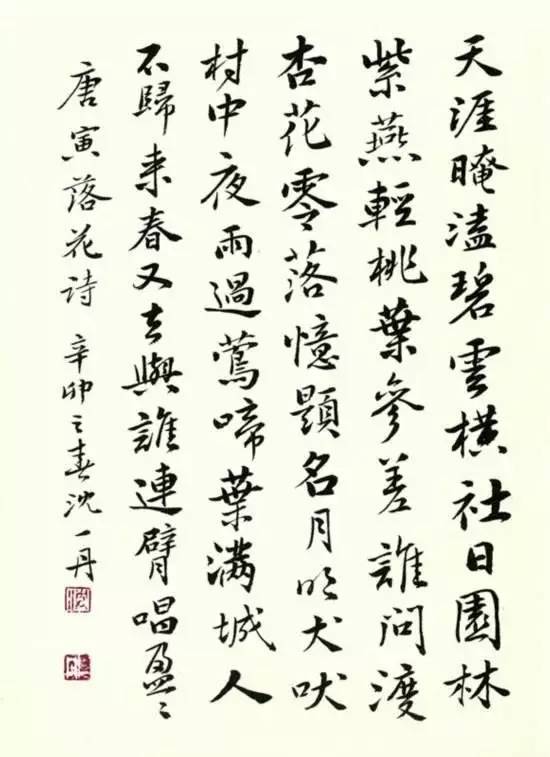 天涯晻溘碧雲横社日園林
紫燕輕桃葉參差誰問渡
杏花零落憶題名月明犬吠
村中夜雨過鶯啼葉滿城人
不歸来春又去與誰連臂唱盈〻
唐寅落花詩 辛卯之春沈一丹